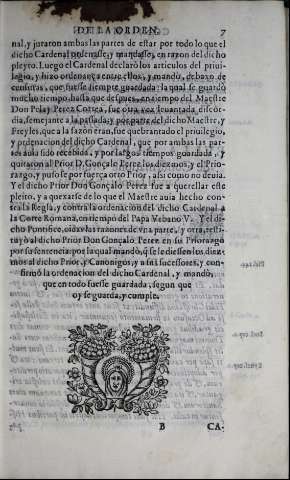 DE LA ORDEN. 7
nal, y juraron ambas las partes de estar por todo lo que el
dicho Cardenal ordenasse, y mandasse, en razon del dicho
pleyto. Luego el Cardenal declarò los articulos del priui-
legio, y hizo ordenança entre ellos, y mandò, debaxo de
censuras, que fuesse siempre guardada: la qual se guardò
mucho tiempo, hasta que despues, en tiempo del Maestre
Don Pelay Perez Correa, fue otra vez leuantada discor-
dia, semejante a la passada, y por parte del dicho Maestre, y
Freyles, que a la sazon eran, fue quebrantado el priuilegio,
y ordenacion del dicho Cardenal, que por ambas las par-
tes auia sido recebida, y por largos tiempos guardada, y
quitaron al Prior D. Gonçalo Perez los diezmos, y el Prio-
razgo, y puso se por fuerça otro Prior, assi como no deuia.
Y el dicho Prior Don Gonçalo Perez fue a querellar este
pleito, y a quexarse de lo que el Maestre auia hecho con-
tra la Regla, y contra la ordenacion del dicho Cardenal a
la Corte Romana, en tiempo del Papa Vrbano V. Y el di-
cho Pontifice, oidas las razones de vna parte, y otra, resti-
tuyò al dicho Prior Don Gonçalo Perez en su Priorazgo
por su sentencia: por la qual mandò, q̃ se le diessen los diez-
mos al dicho Prior, y Canonigos, y a sus sucessores, y con-
firmò la ordenacion del dicho Cardenal, y mandò,
que en todo fuesse guardada, segun que
oy se guarda, y cumple.
B CA-